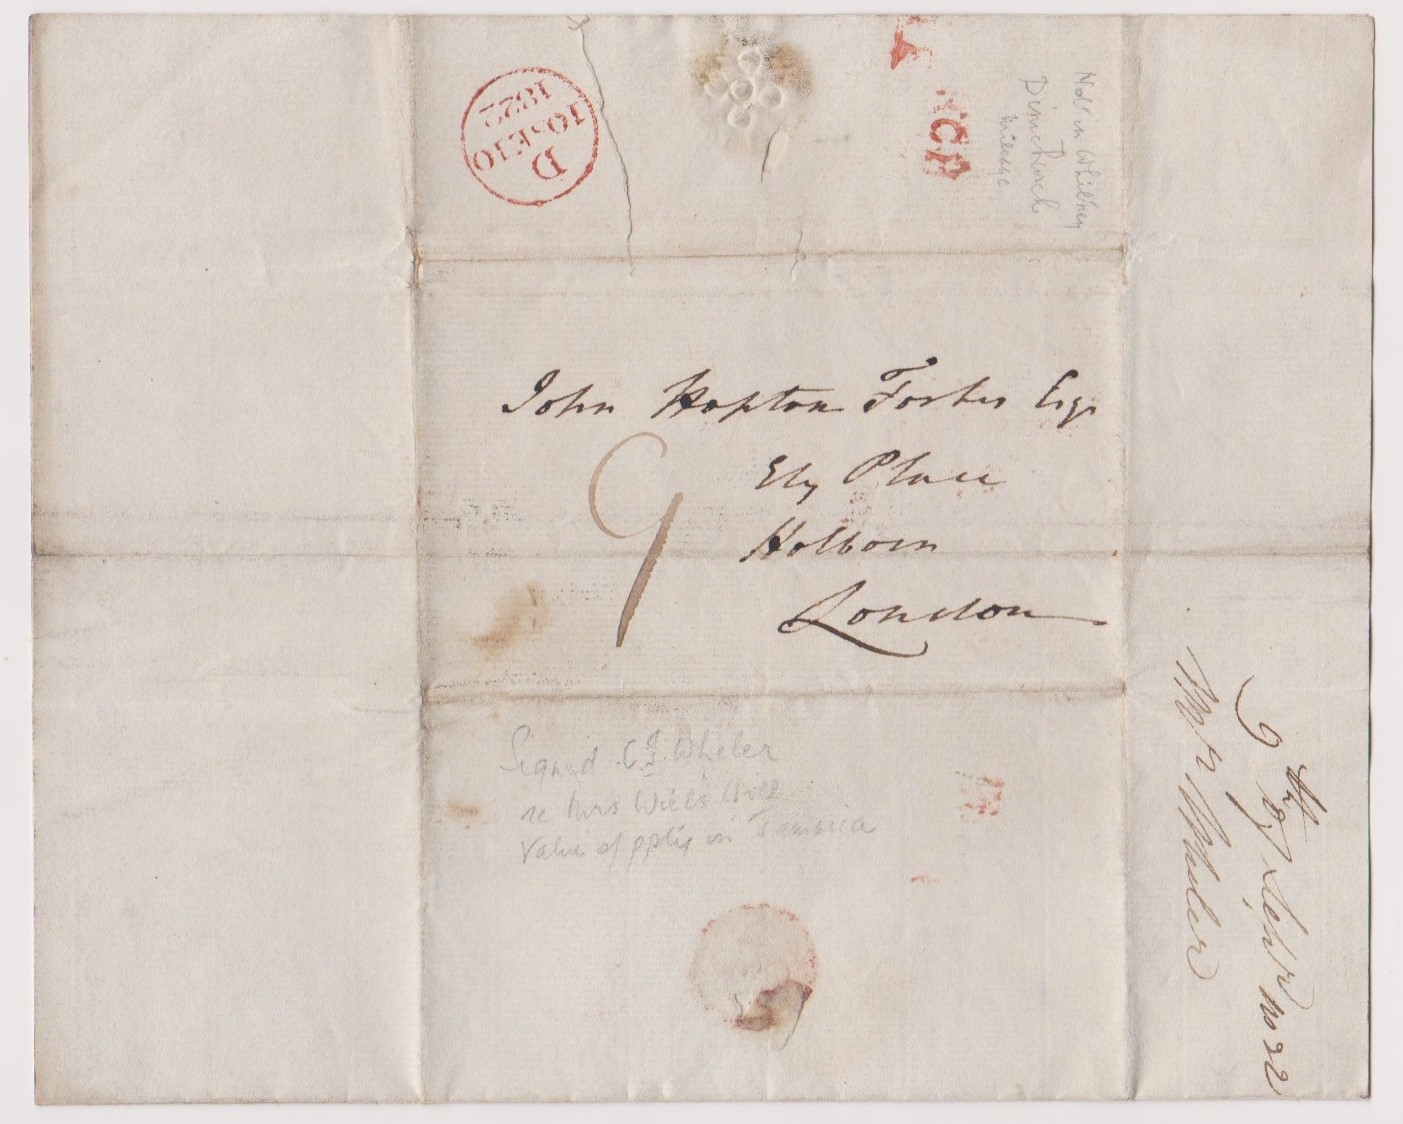 D
10SE10
1822
Not in Whitney
Dimchurch
mileage
John Hopton Forbes Esqr
Ely Place
Holborn
London
9
Signed C J Wheler
re Mrs
Value of ppty in Jamaica
9th Septr 1822
Mr Wheler